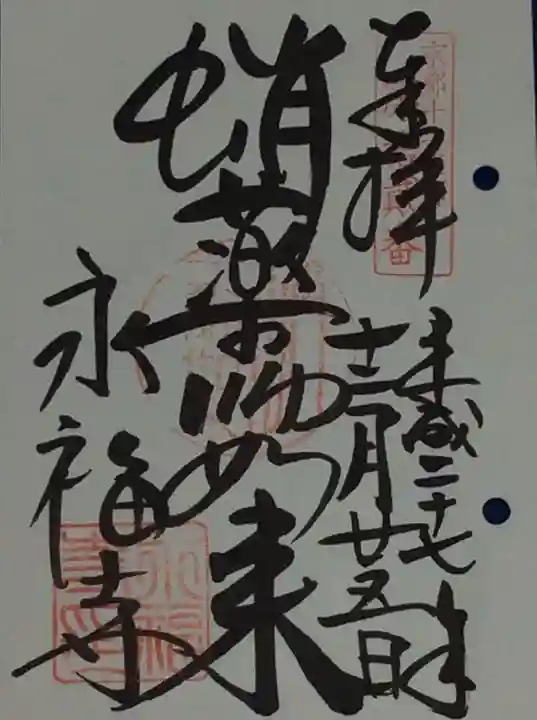 奉拝
平成二十七年
十二月廿五日
蛸薬師如来
永福寺